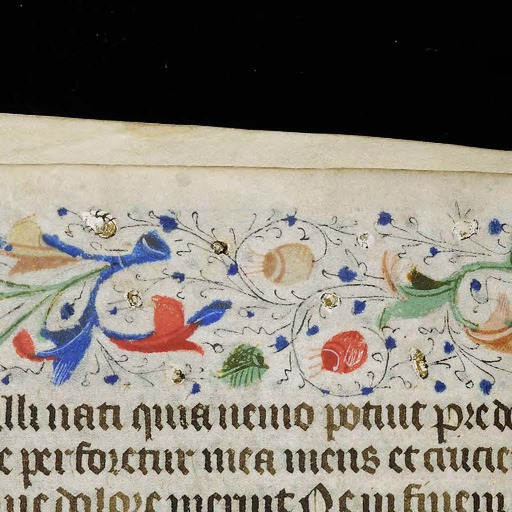 illi nati quia nemo potuit pre do
e perforetur mea mens et crucie
ne dolore merunt Ne in finem